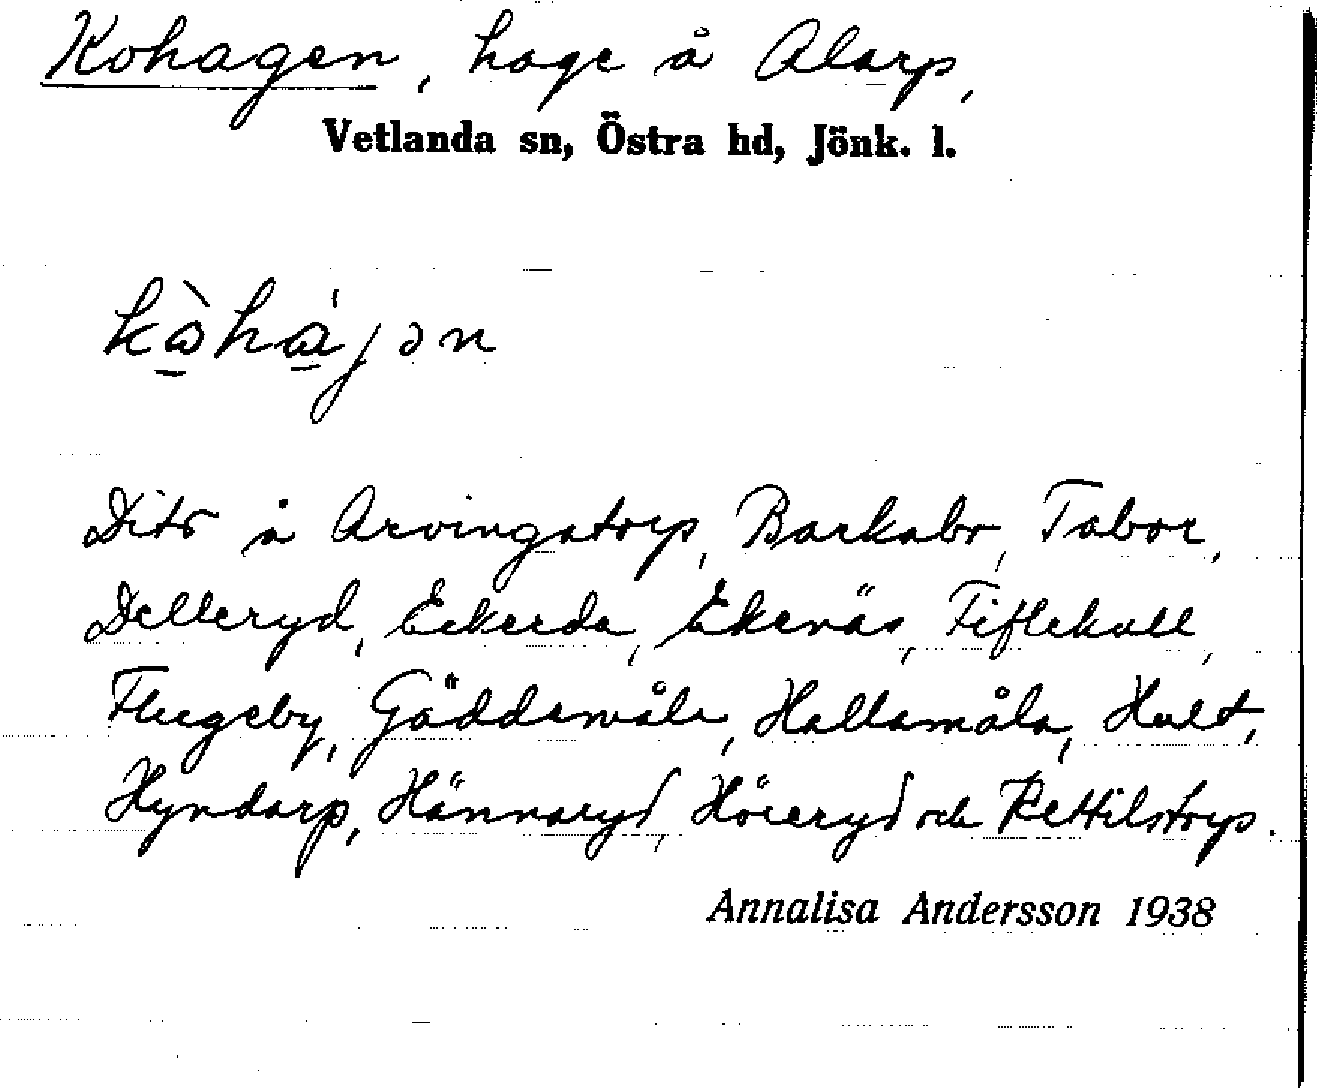 Kohagen, hage å Alarp,
Vetlanda sn, Östra hd, Jönk. l.
kò̱há̱jən
Dito å Arvingatorp, Barkabo, Tabor,
Delleryd, Eckerda, Ekenäs, Fiflekull,
Flugeby, Gäddemåla, Hallamåla, Hult,
Hyndarp, Hännaryd, Höieryd och Kettilstorp.
Annalisa Andersson 1938